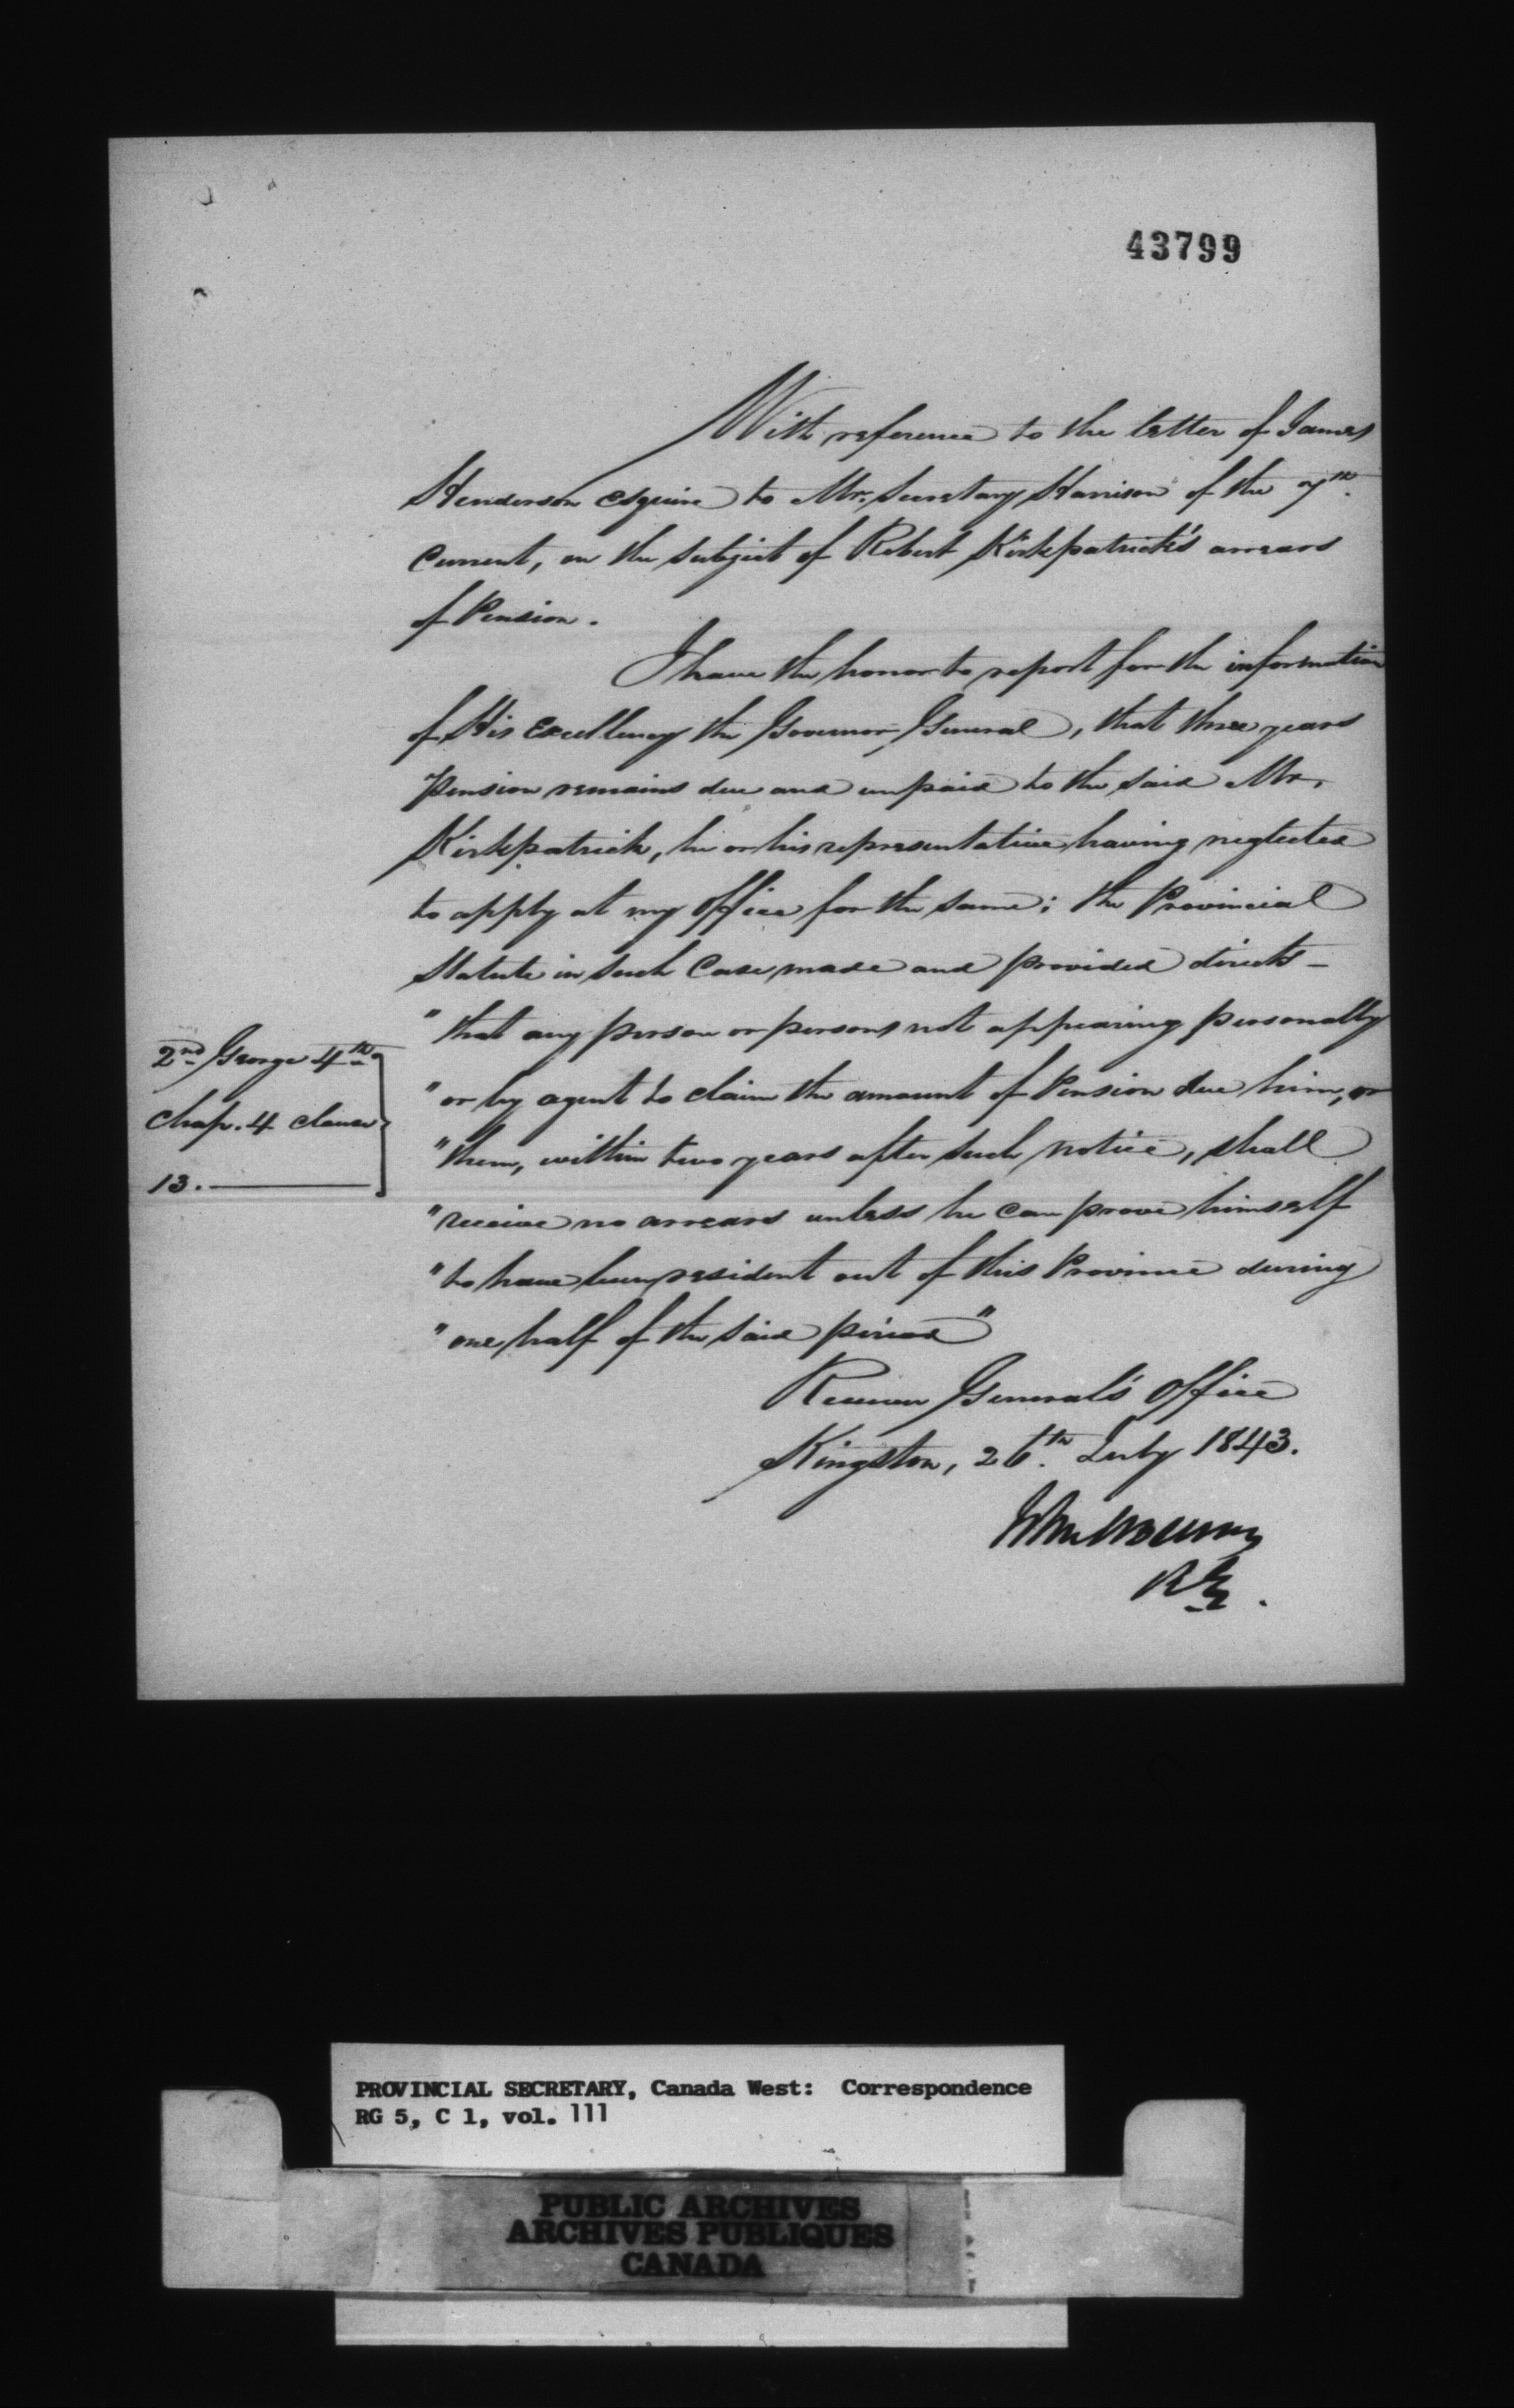 43799
With reference to the letter of James
Henderson Esquire to Mr. Secretary Harrison of the 7th
Current, on the subject of Robert Kirkpatrick's arrears
of Pension.
I have the honor to report for the information
of His Excellency the Governor General, that three years
Pension remains due and unpaid to the said Mr.
Kirkpatrick, he or his representative having neglected
to apply at my Office for the same; the Provincial
Statute in such Case made and provided directs -
" that any person or persons not appearing personally
2nd George 4th
" or by agent to claim the amount of Pension due him, or
Chap. 4 clause
" them, within two years after such notice, shall
13.
" receive no arrears unless he can prove himself
" to have been resident out of this Province during
" one half of the said period "
Receiver General's Office
Kingston, 26th July 1843.
R G.
PROVINCIAL SECRETARY, Canada West: Correspondence
RG 5, C 1, vol. 111
PUBLIC ARCHIVES
ARCHIVES PUBLIQUES
CANADA